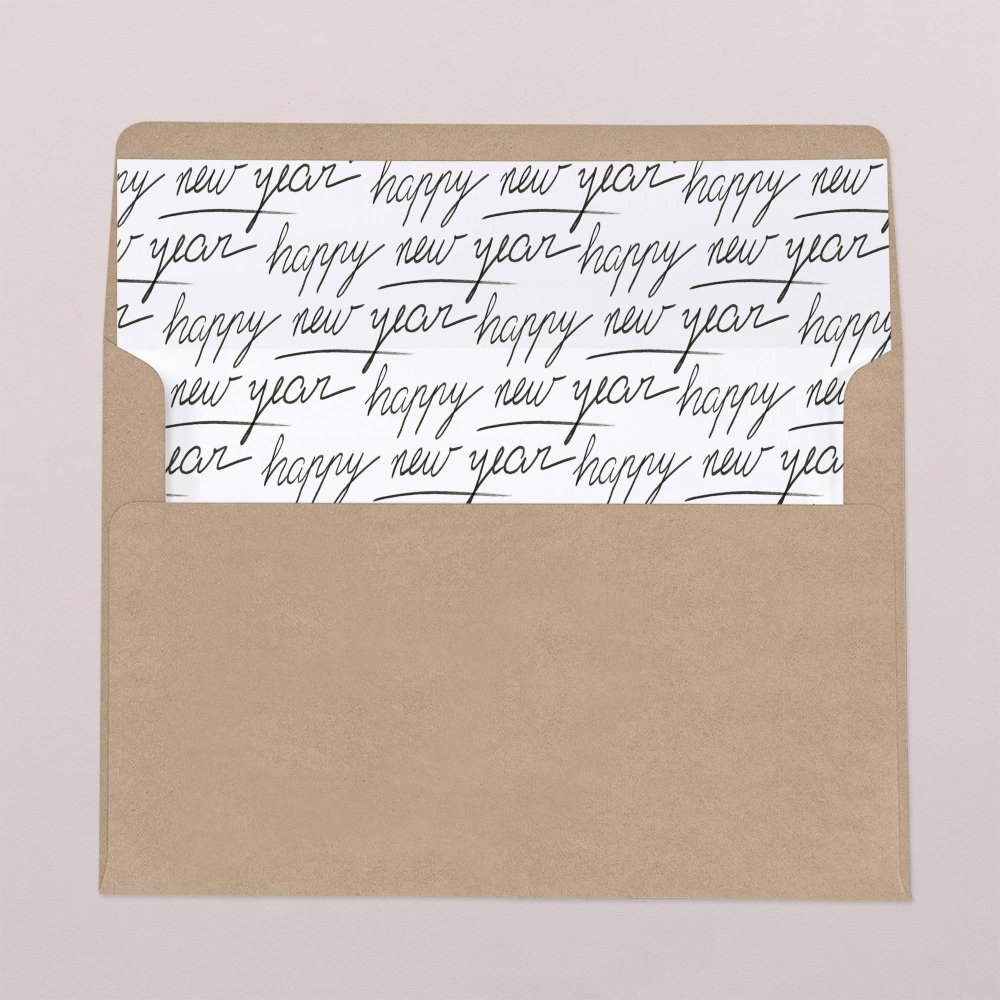 new year happy new year happy new
year happy new year happy new year
happy new year happy new year happy
new year happy new year happy
happy new year happy new